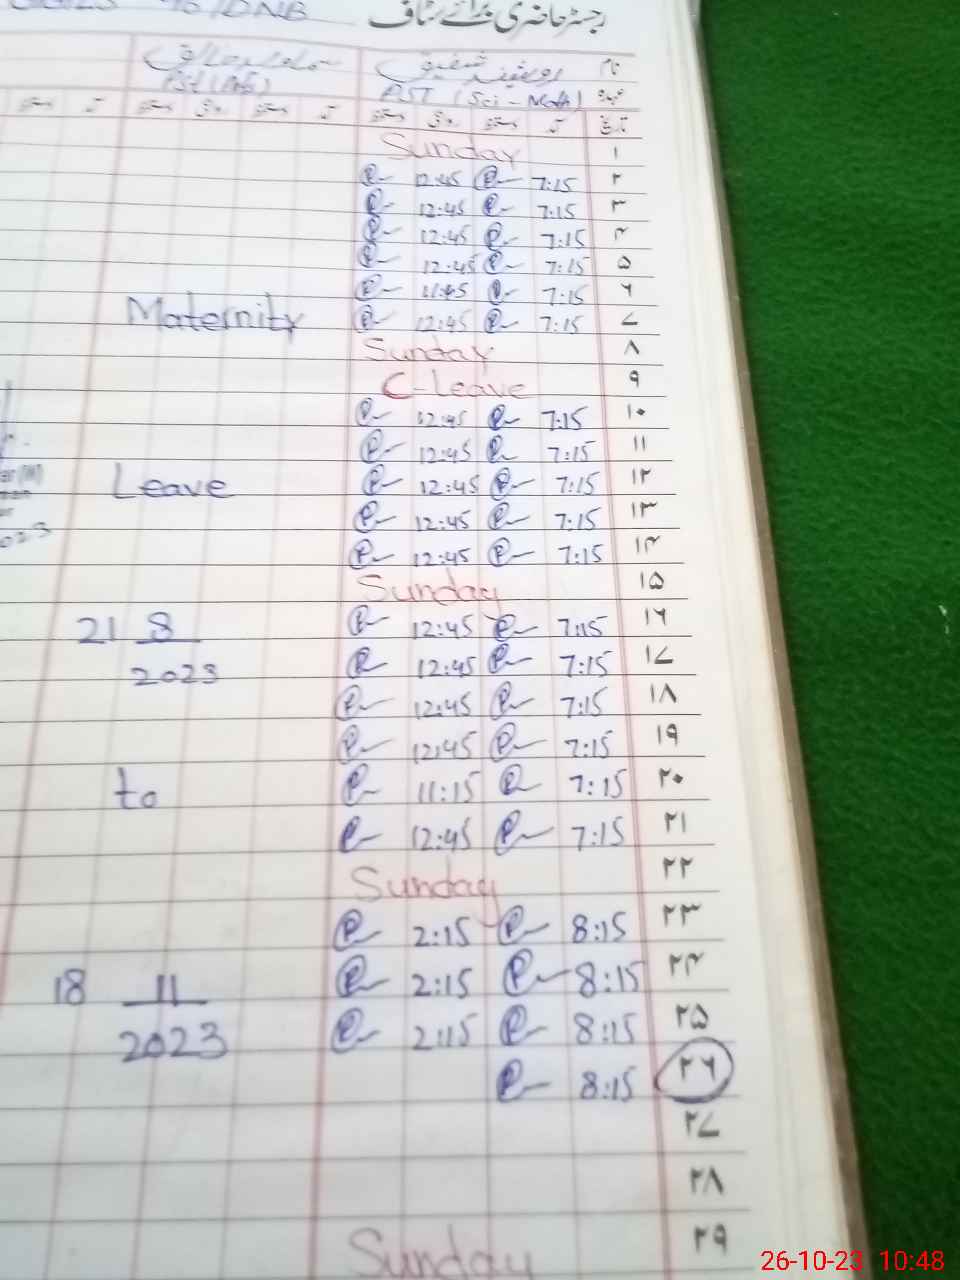 رجسٹر حاضری برائے سٹاف
نام
عہدہ PST (Sci-Math)
تاریخ آمد دستخط روانگی دستخط
۱ Sunday
۲ 7:15 12:45
۳ 7:15 12:45
۴ 7:15 12:45
۵ 7:15 12:45
۶ 7:15 11:45
۷ 7:15 12:45
Maternity
۸ Sunday
۹ C-Leave
۱۰ 7:15 12:45
۱۱ 7:15 12:45
۱۲ 7:15 12:45
Leave
۱۳ 7:15 12:45
۱۴ 7:15 12:45
۱۵ Sunday
۱۶ 7:15 12:45
21 8
۱۷ 7:15 12:45
2023
۱۸ 7:15 12:45
۱۹ 7:15 12:45
۲۰ 7:15 11:15
to
۲۱ 7:15 12:45
۲۲ Sunday
۲۳ 8:15 2:15
۲۴ 8:15 2:15
18 11
۲۵ 8:15 2:15
2023
۲۶ 8:15
۲۷
۲۸
۲۹ Sunday
26-10-23 10:48